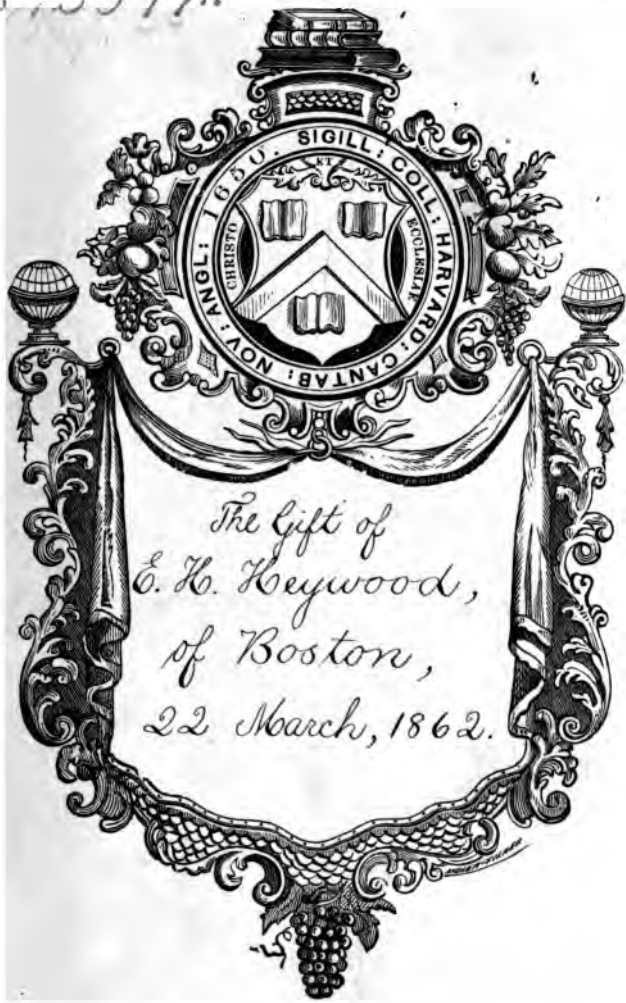 SIGILL: COLL: HARVARD: CANTAB: NOV: ANGL: 1650.
CHRISTO
ET
ECCLESIAE
The Gift of
E. H. Heywood,
of Boston,
22 March, 1862.